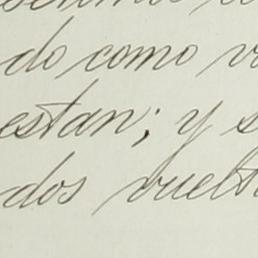 do como
estan; y
dos vuelt